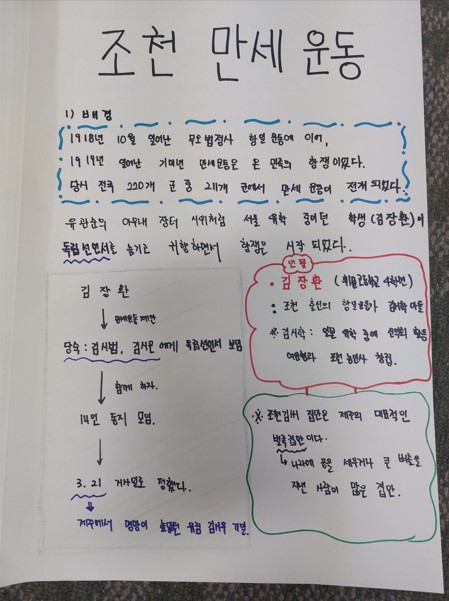 조천 만세 운동
1) 배경
1918년 10월 일어난 무오법정사 항일 운동에 이어,
1919년 일어난 기미년 만세운동은 온 민족의 항쟁이었다.
당시 전국 220개 군 중 211개 군에서 만세 운동이 전개 되었다.
유관순의 아우내 장터 시위처럼 서울 유학 중이던 학생 (김장환)이
독립선언서를 숨기고 귀향하면서 항쟁은 시작 되었다.
김장환
만세운동 제안
당숙 : 김시범, 김시은 에게 독립선언서 보임
함께 하자.
14인 동지 모임.
3. 21 거사일로 정했다.
제주에서 명망이 높았던 유림 김시우 기일.
인물
• 김장환 (휘문고등학교 4학년)
• 조천 출신의 항일운동가 김시학 아들
※ 김시학 : 일본 유학 중에
조천 창립.
※ 조천김씨 집안은 제주의 대표적인
벌족집안이다.
나라에 공을 세우거나 큰 벼슬을
지낸 사람이 많은 집안.